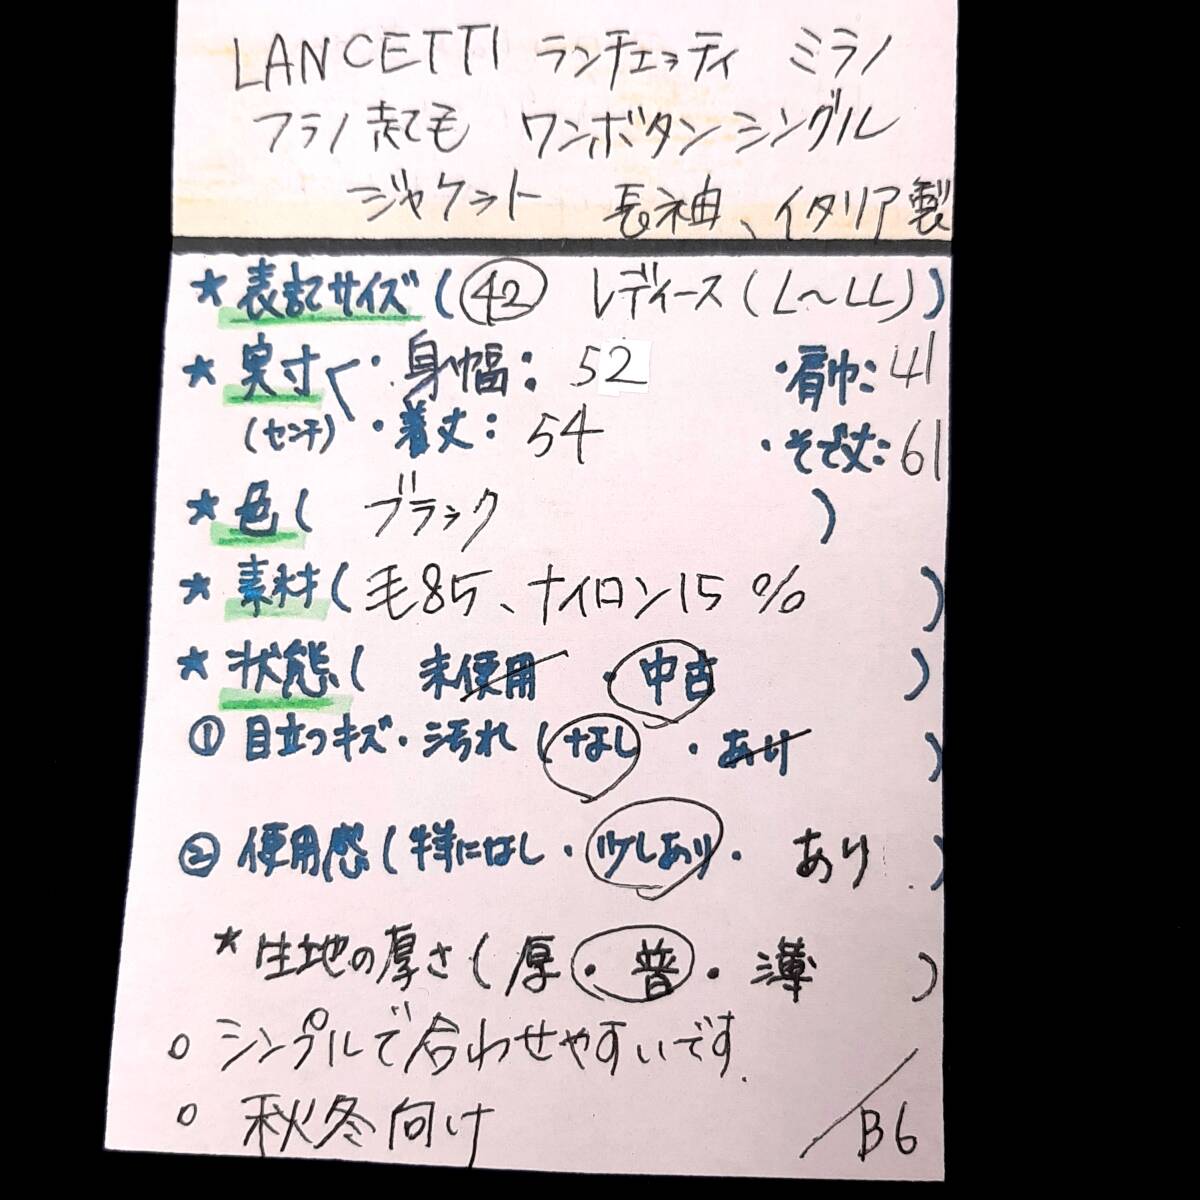 LANCETTI ランチェッティ ミラノ
フラノ起毛 ワンボタンシングル
ジャケット 長袖、イタリア製
★表記サイズ(42 レディース(L〜LL))
★実寸く・身幅:52 ・肩巾:41
(センチ) ・着丈:54 ・そで丈:61
★色( ブラック )
★素材(毛85、ナイロン15% )
★状態( 未使用 ・中古 )
①目立つキズ・汚れ(なし ・あり )
②使用感(特になし・少しあり・ あり )
*生地の厚さ(厚・普・薄 )
○シンプルで合わせやすいです.
○秋冬向け
B6